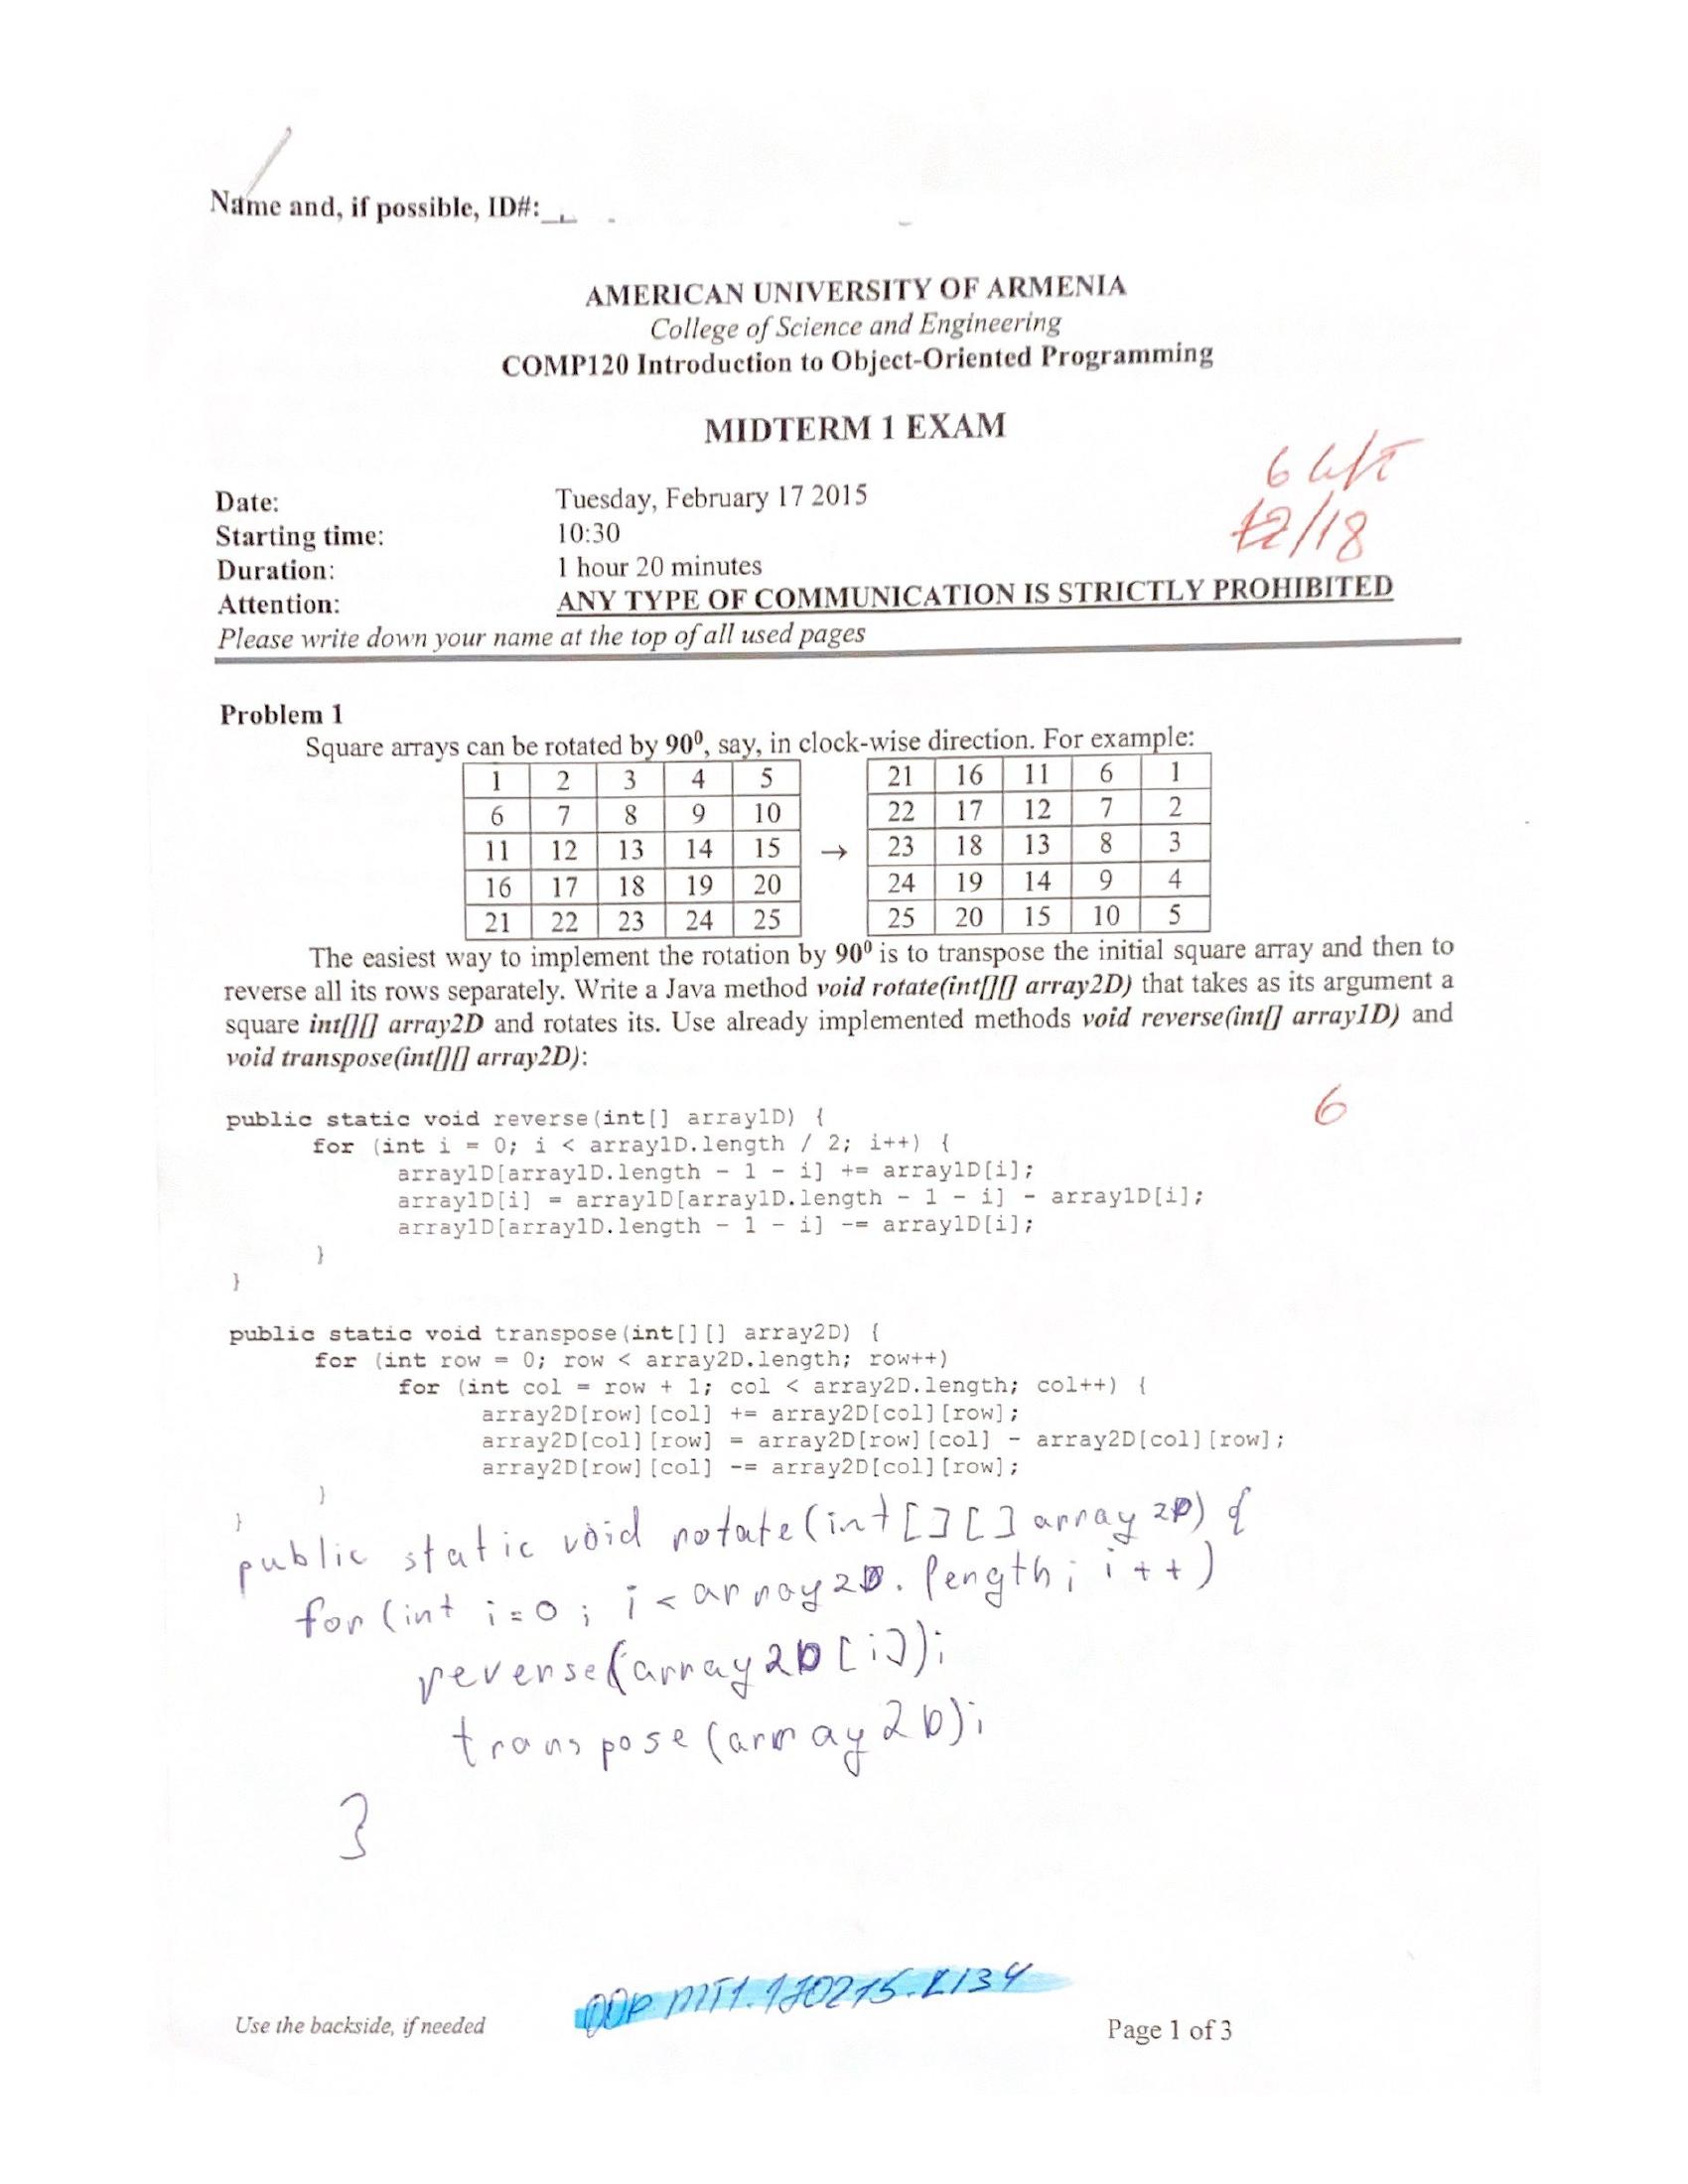 Name and, if possible, ID#:
AMERICAN UNIVERSITY OF ARMENIA
College of Science and Engineering
COMP120 Introduction to Object-Oriented Programming
MIDTERM 1 EXAM
6
12/18
Date: Tuesday, February 17 2015
Starting time: 10:30
Duration: 1 hour 20 minutes
Attention: ANY TYPE OF COMMUNICATION IS STRICTLY PROHIBITED
Please write down your name at the top of all used pages
Problem 1
Square arrays can be rotated by 90⁰, say, in clock-wise direction. For example:
1 2 3 4 5 21 16 11 6 1
6 7 8 9 10 22 17 12 7 2
11 12 13 14 15 → 23 18 13 8 3
16 17 18 19 20 24 19 14 9 4
21 22 23 24 25 25 20 15 10 5
The easiest way to implement the rotation by 90⁰ is to transpose the initial square array and then to
reverse all its rows separately. Write a Java method void rotate(int[][] array2D) that takes as its argument a
square int[][] array2D and rotates its. Use already implemented methods void reverse(int[] array1D) and
void transpose(int[][] array2D):
6
public static void reverse(int[] array1D) {
for (int i = 0; i < array1D.length / 2; i++) {
array1D[array1D.length - 1 - i] += array1D[i];
array1D[i] = array1D[array1D.length - 1 - i] - array1D[i];
array1D[array1D.length - 1 - i] -= array1D[i];
}
}
public static void transpose(int[][] array2D) {
for (int row = 0; row < array2D.length; row++)
for (int col = row + 1; col < array2D.length; col++) {
array2D[row][col] += array2D[col][row];
array2D[col][row] = array2D[row][col] - array2D[col][row];
array2D[row][col] -= array2D[col][row];
}
}
public static void rotate(int[][] array2D) {
for (int i=0; i < array2D.length; i++)
reverse(array2D[i]);
transpose(array2D);
}
Use the backside, if needed
OOP MT1.170215.L134
Page 1 of 3